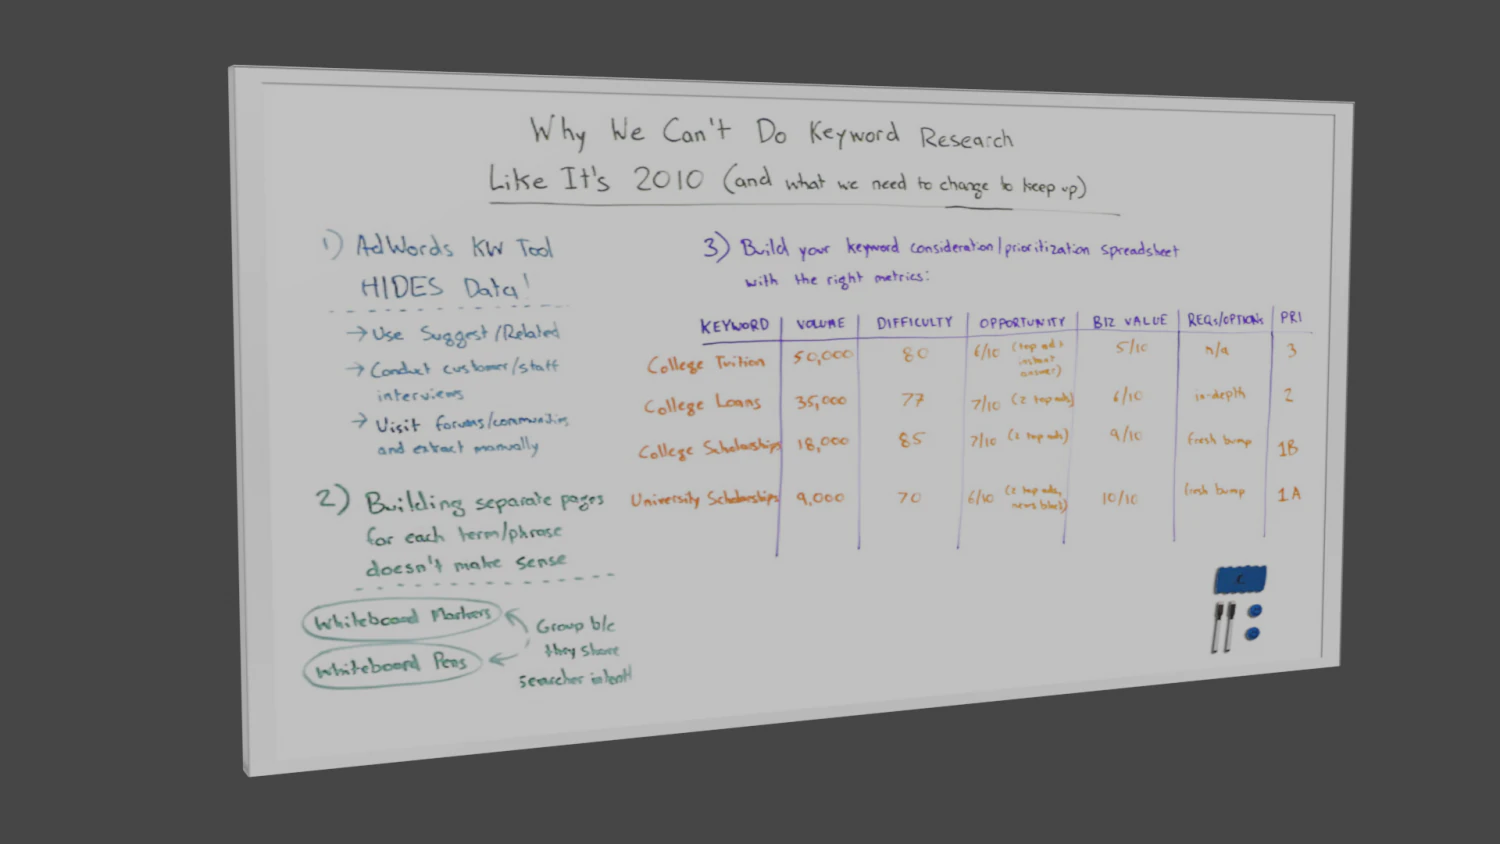 Why We Can't Do Keyword Research
Like It's 2010 (and what we need to change to keep up)
1) AdWords KW Tool
HIDES Data!
→ Use Suggest/Related
→ Conduct customer/staff
interviews
→ Visit forums/communities
and extract manually
2) Building separate pages
for each term/phrase
doesn't make sense
Whiteboard Markers
Whiteboard Pens
Group b/c
they share
searcher intent!
3) Build your keyword consideration/prioritization spreadsheet
with the right metrics:
KEYWORD VOLUME DIFFICULTY OPPORTUNITY BIZ VALUE REQs/OPTIONS PRI
College Tuition 50,000 80 6/10 (top ad, instant answer) 5/10 n/a 3
College Loans 35,000 77 7/10 (2 top ads) 6/10 in-depth 2
College Scholarships 18,000 85 7/10 (2 top ads) 9/10 fresh bump 1B
University Scholarships 9,000 70 6/10 (2 top ads, news block) 10/10 fresh bump 1A